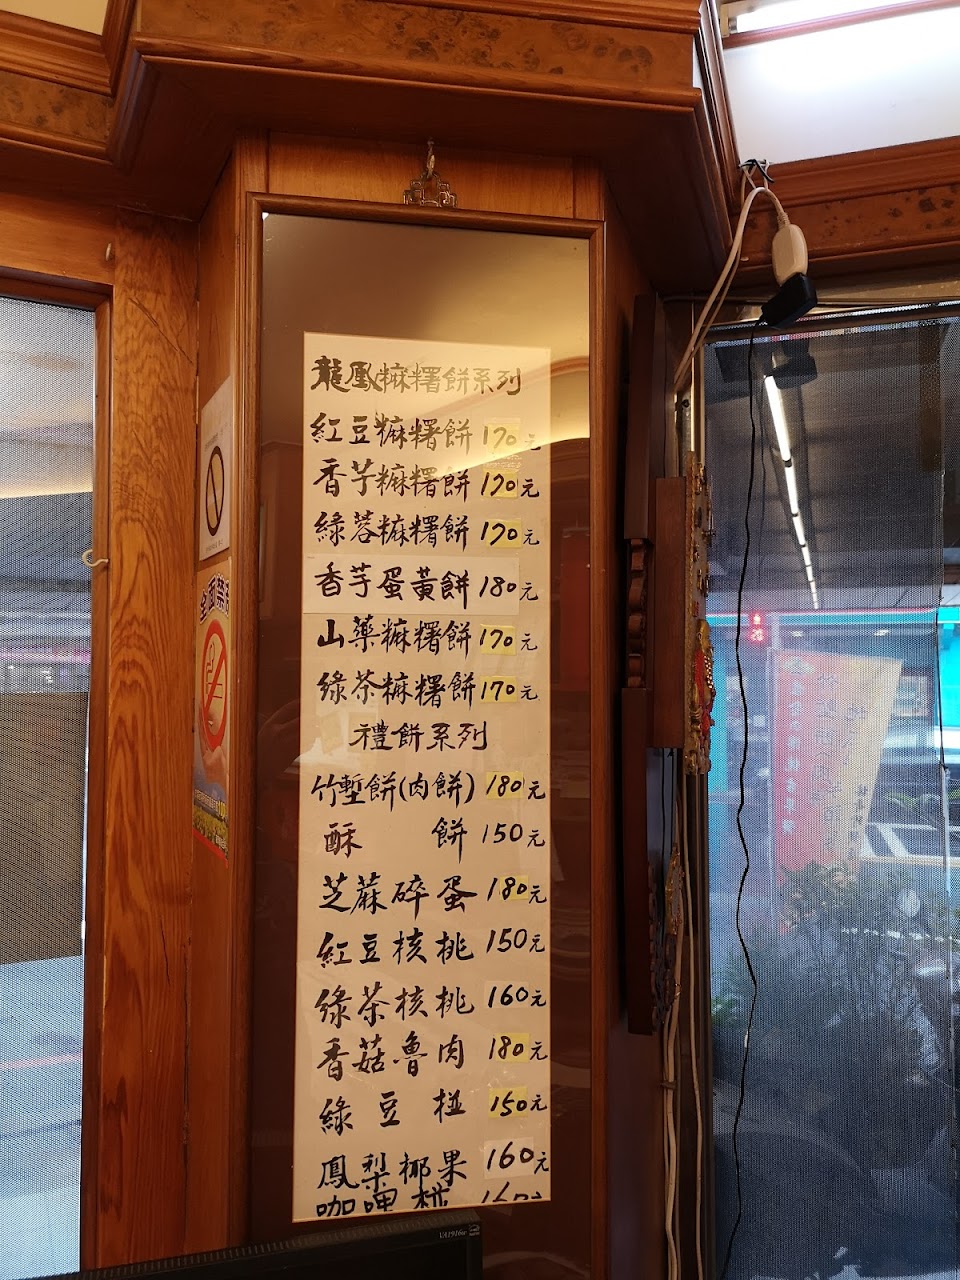 龍鳳麻糬餅系列
紅豆麻糬餅170元
香芋麻糬餅170元
綠蓉麻糬餅170元
香芋蛋黃餅180元
山藥麻糬餅170元
綠茶麻糬餅170元
禮餅系列
竹塹餅(肉餅)180元
酥餅150元
芝蔴碎蛋180元
紅豆核桃150元
綠茶核桃160元
香菇魯肉180元
綠豆椪150元
鳳梨椰果160元
咖哩椪160元
全面禁
VA1916w